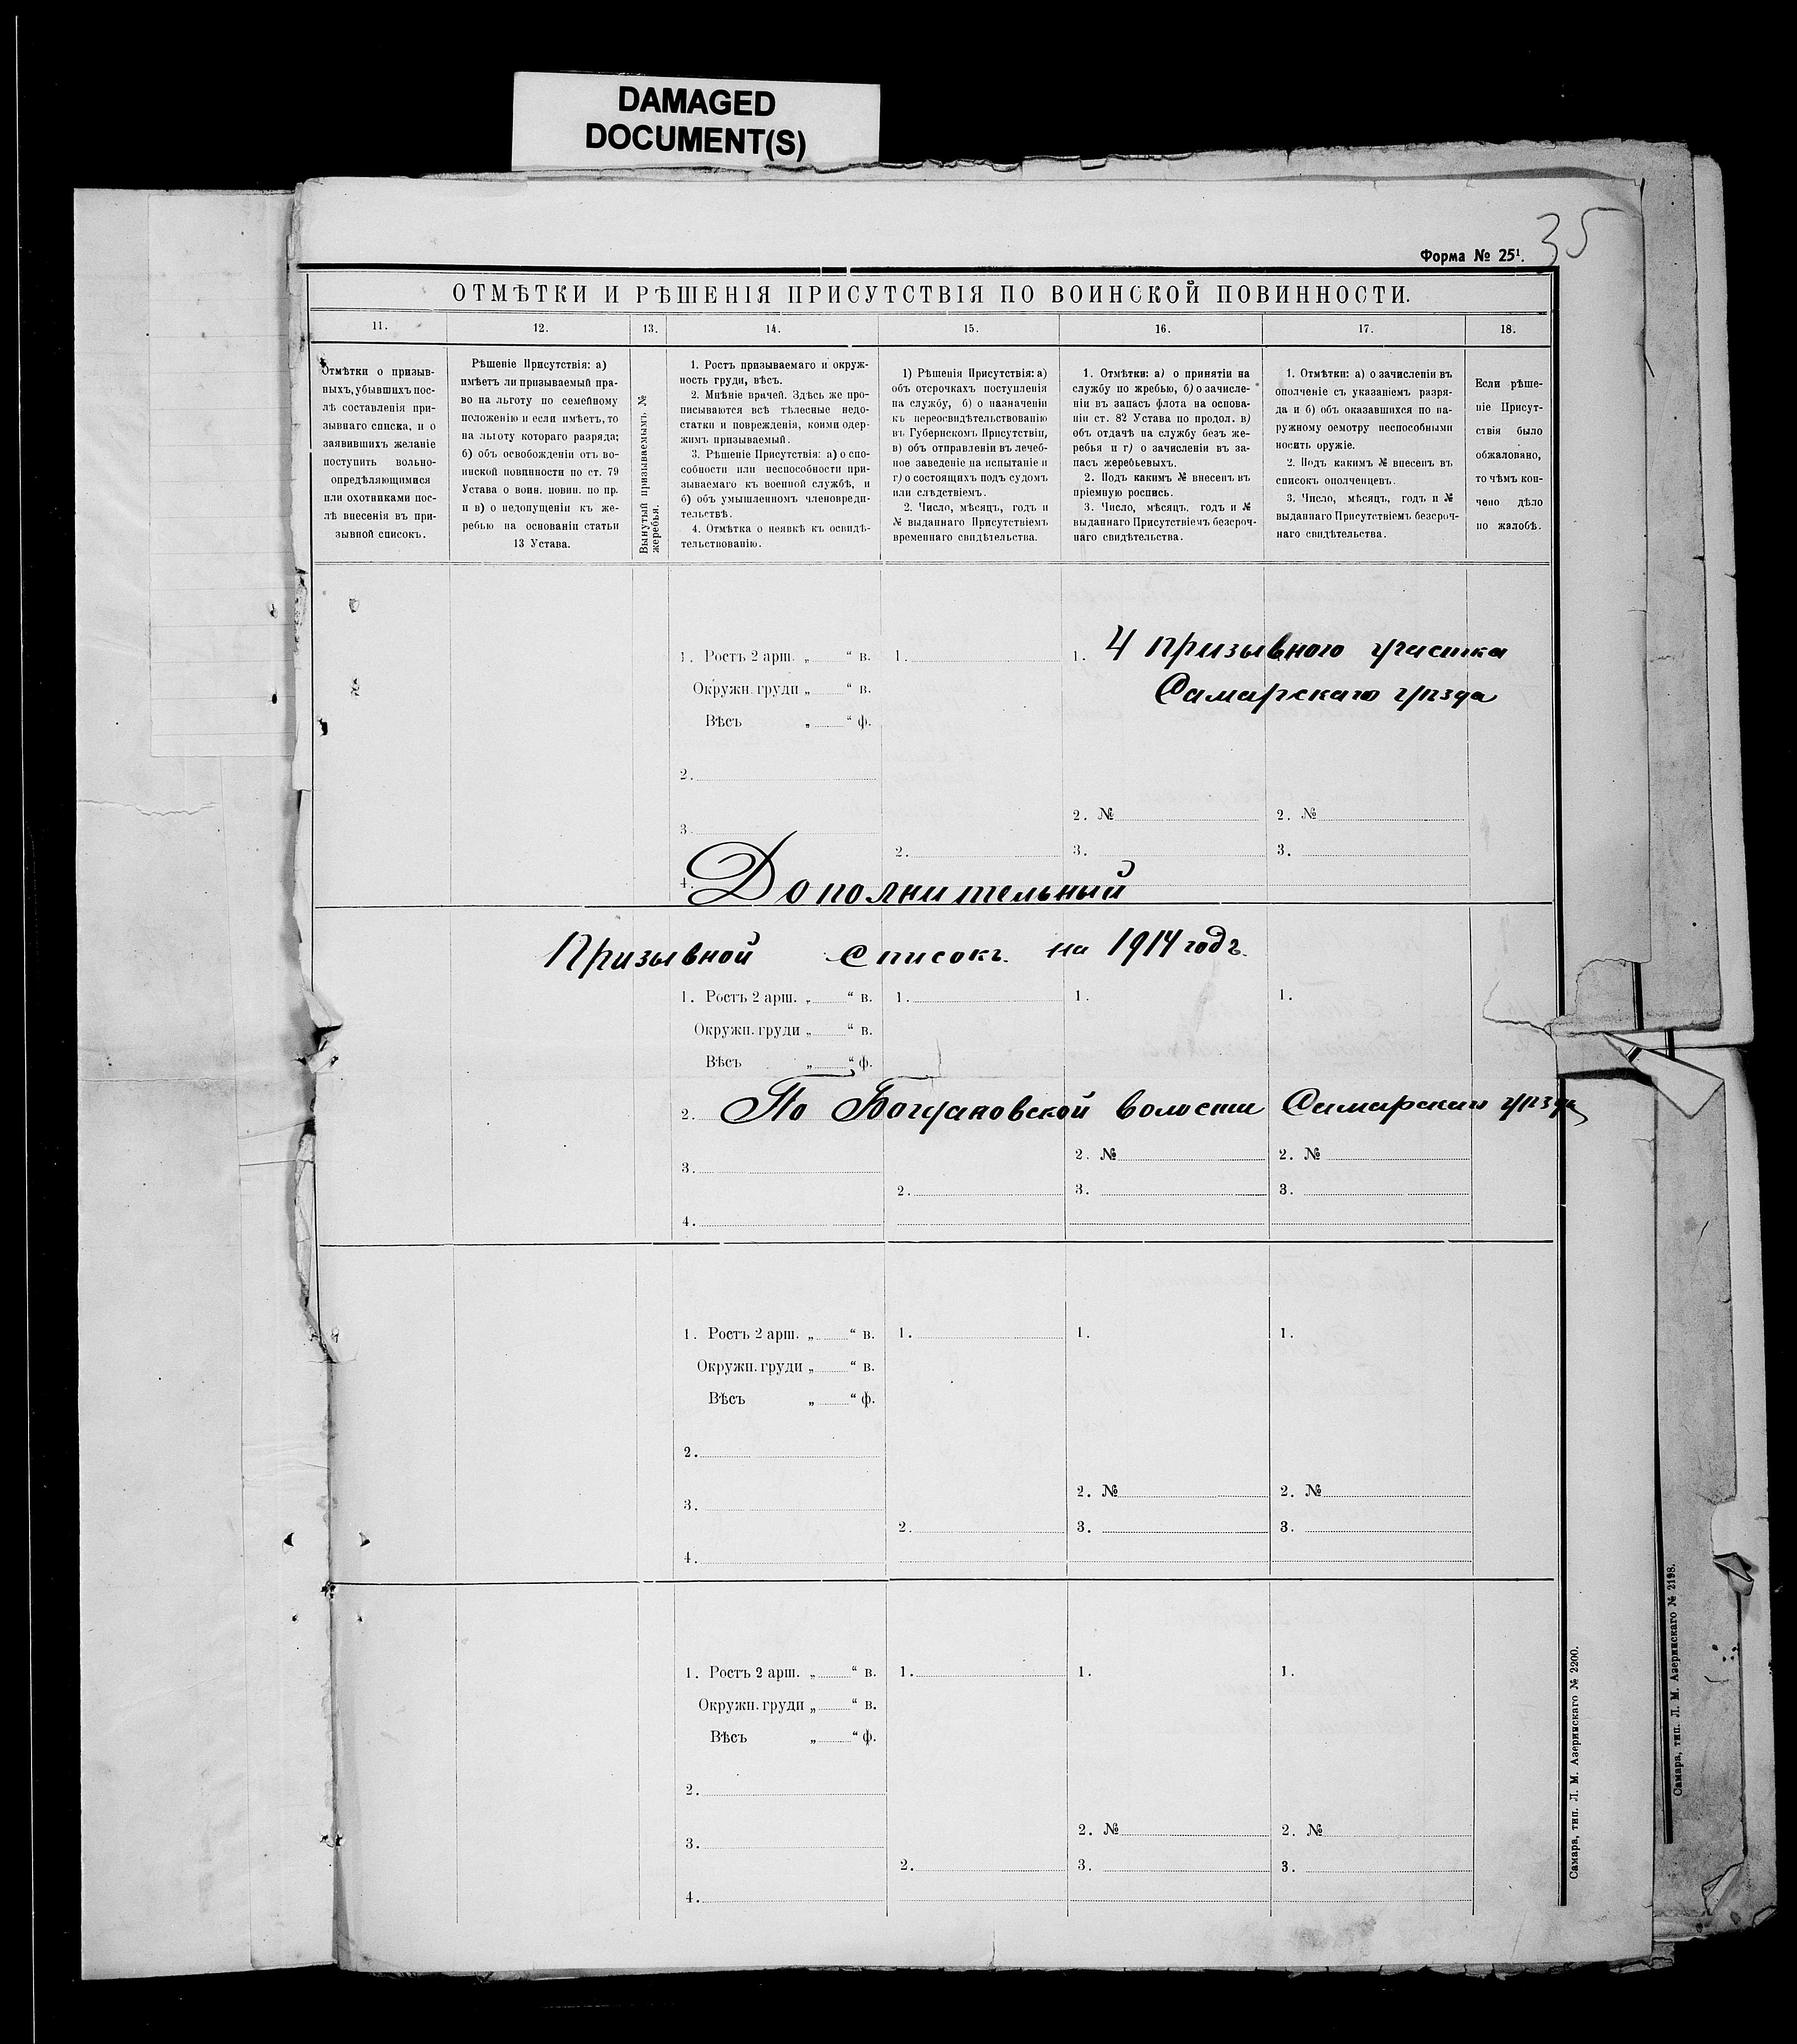 DAMAGED
DOCUMENT(S)
35
Форма № 25¹.
ОТМѢТКИ И РѢШЕНІЯ ПРИСУТСТВІЯ ПО ВОИНСКОЙ ПОВИННОСТИ.
11. 12. 13. 14. 15. 16. 17. 18.
Отмѣтки о призыв-
ныхъ, убывшихъ пос-
лѣ составленія при-
зывнаго списка, и о
заявившихъ желаніе
поступить вольно-
опредѣляющимися
или охотниками пос-
лѣ внесенія въ при-
зывной списокъ.
Рѣшеніе Присутствія: а)
имѣетъ ли призываемый пра-
во на льготу по семейному
положенію и если имѣетъ, то
на льготу котораго разряда;
б) объ освобожденіи отъ во-
инской повинности по ст. 79
Устава о воин. повин. по пр.
и в) о недопущеніи къ же-
ребью на основаніи статьи
13 Устава.
Вынутый призываемымъ №
жеребья.
1. Ростъ призываемаго и окруж-
ность груди, вѣсъ.
2. Мнѣніе врачей. Здѣсь же про-
писываются всѣ тѣлесные недо-
статки и поврежденія, коими одер-
жимъ призываемый.
3. Рѣшеніе Присутствія: а) о спо-
собности или неспособности при-
зываемаго къ военной службѣ, и
б) объ умышленномъ членовреди-
тельствѣ.
4. Отмѣтка о неявкѣ къ освидѣ-
тельствованію.
1) Рѣшенія Присутствія: а)
объ отсрочкахъ поступленія
на службу, б) о назначеніи
къ переосвидѣтельствованію
въ Губернскомъ Присутствіи,
в) объ отправленіи въ лечеб-
ное заведеніе на испытаніе и
г) о состоящихъ подъ судомъ
или слѣдствіемъ.
2. Число, мѣсяцъ, годъ и
№ выданнаго Присутствіемъ
временнаго свидѣтельства.
1. Отмѣтки: а) о принятіи на
службу по жребью, б) о зачисле-
ніи въ запасъ флота на основа-
ніи ст. 82 Устава по продол. в)
объ отдачѣ на службу безъ же-
ребья и г) о зачисленіи въ за-
пасъ жеребьевыхъ.
2. Подъ какимъ № внесенъ въ
пріемную роспись.
3. Число, мѣсяцъ, годъ и №
выданнаго Присутствіемъ безсроч-
наго свидѣтельства.
1. Отмѣтки: а) о зачисленіи въ
ополченіе съ указаніемъ разря-
да и б) объ оказавшихся по на-
ружному осмотру неспособными
носить оружіе.
2. Подъ какимъ № внесенъ въ
списокъ ополченцевъ.
3. Число, мѣсяцъ, годъ и №
выданнаго Присутствіемъ безсроч-
наго свидѣтельства.
Если рѣше-
ніе Присут-
ствія было
обжаловано,
то чѣмъ кон-
чено дѣло
по жалобѣ.
1. Ростъ 2 арш. „ “ в. 1. 1. 4 призывного участка
Окружн. груди „ “ в. Самарскаго уѣзда
Вѣсъ „ “ ф.
2.
2. № 2. №
3.
2. 3. 3.
4. Дополнительный
Призывной списокъ на 1914 годъ.
1. Ростъ 2 арш. „ “ в. 1. 1. 1.
Окружн. груди „ “ в.
Вѣсъ „ “ ф.
2. По Богдановской волости Самарскаго уѣзда
2. № 2. №
3.
2. 3. 3.
4.
1. Ростъ 2 арш. „ “ в. 1. 1. 1.
Окружн. груди „ “ в.
Вѣсъ „ “ ф.
2.
2. № 2. №
3.
2. 3. 3.
4.
1. Ростъ 2 арш. „ “ в. 1. 1. 1.
Окружн. груди „ “ в.
Вѣсъ „ “ ф.
2.
2. № 2. №
3.
2. 3. 3.
4.
Самара, тип. Л. М. Азеринскаго № 2200.
Самара, тип. Л. М. Азеринскаго № 2198.